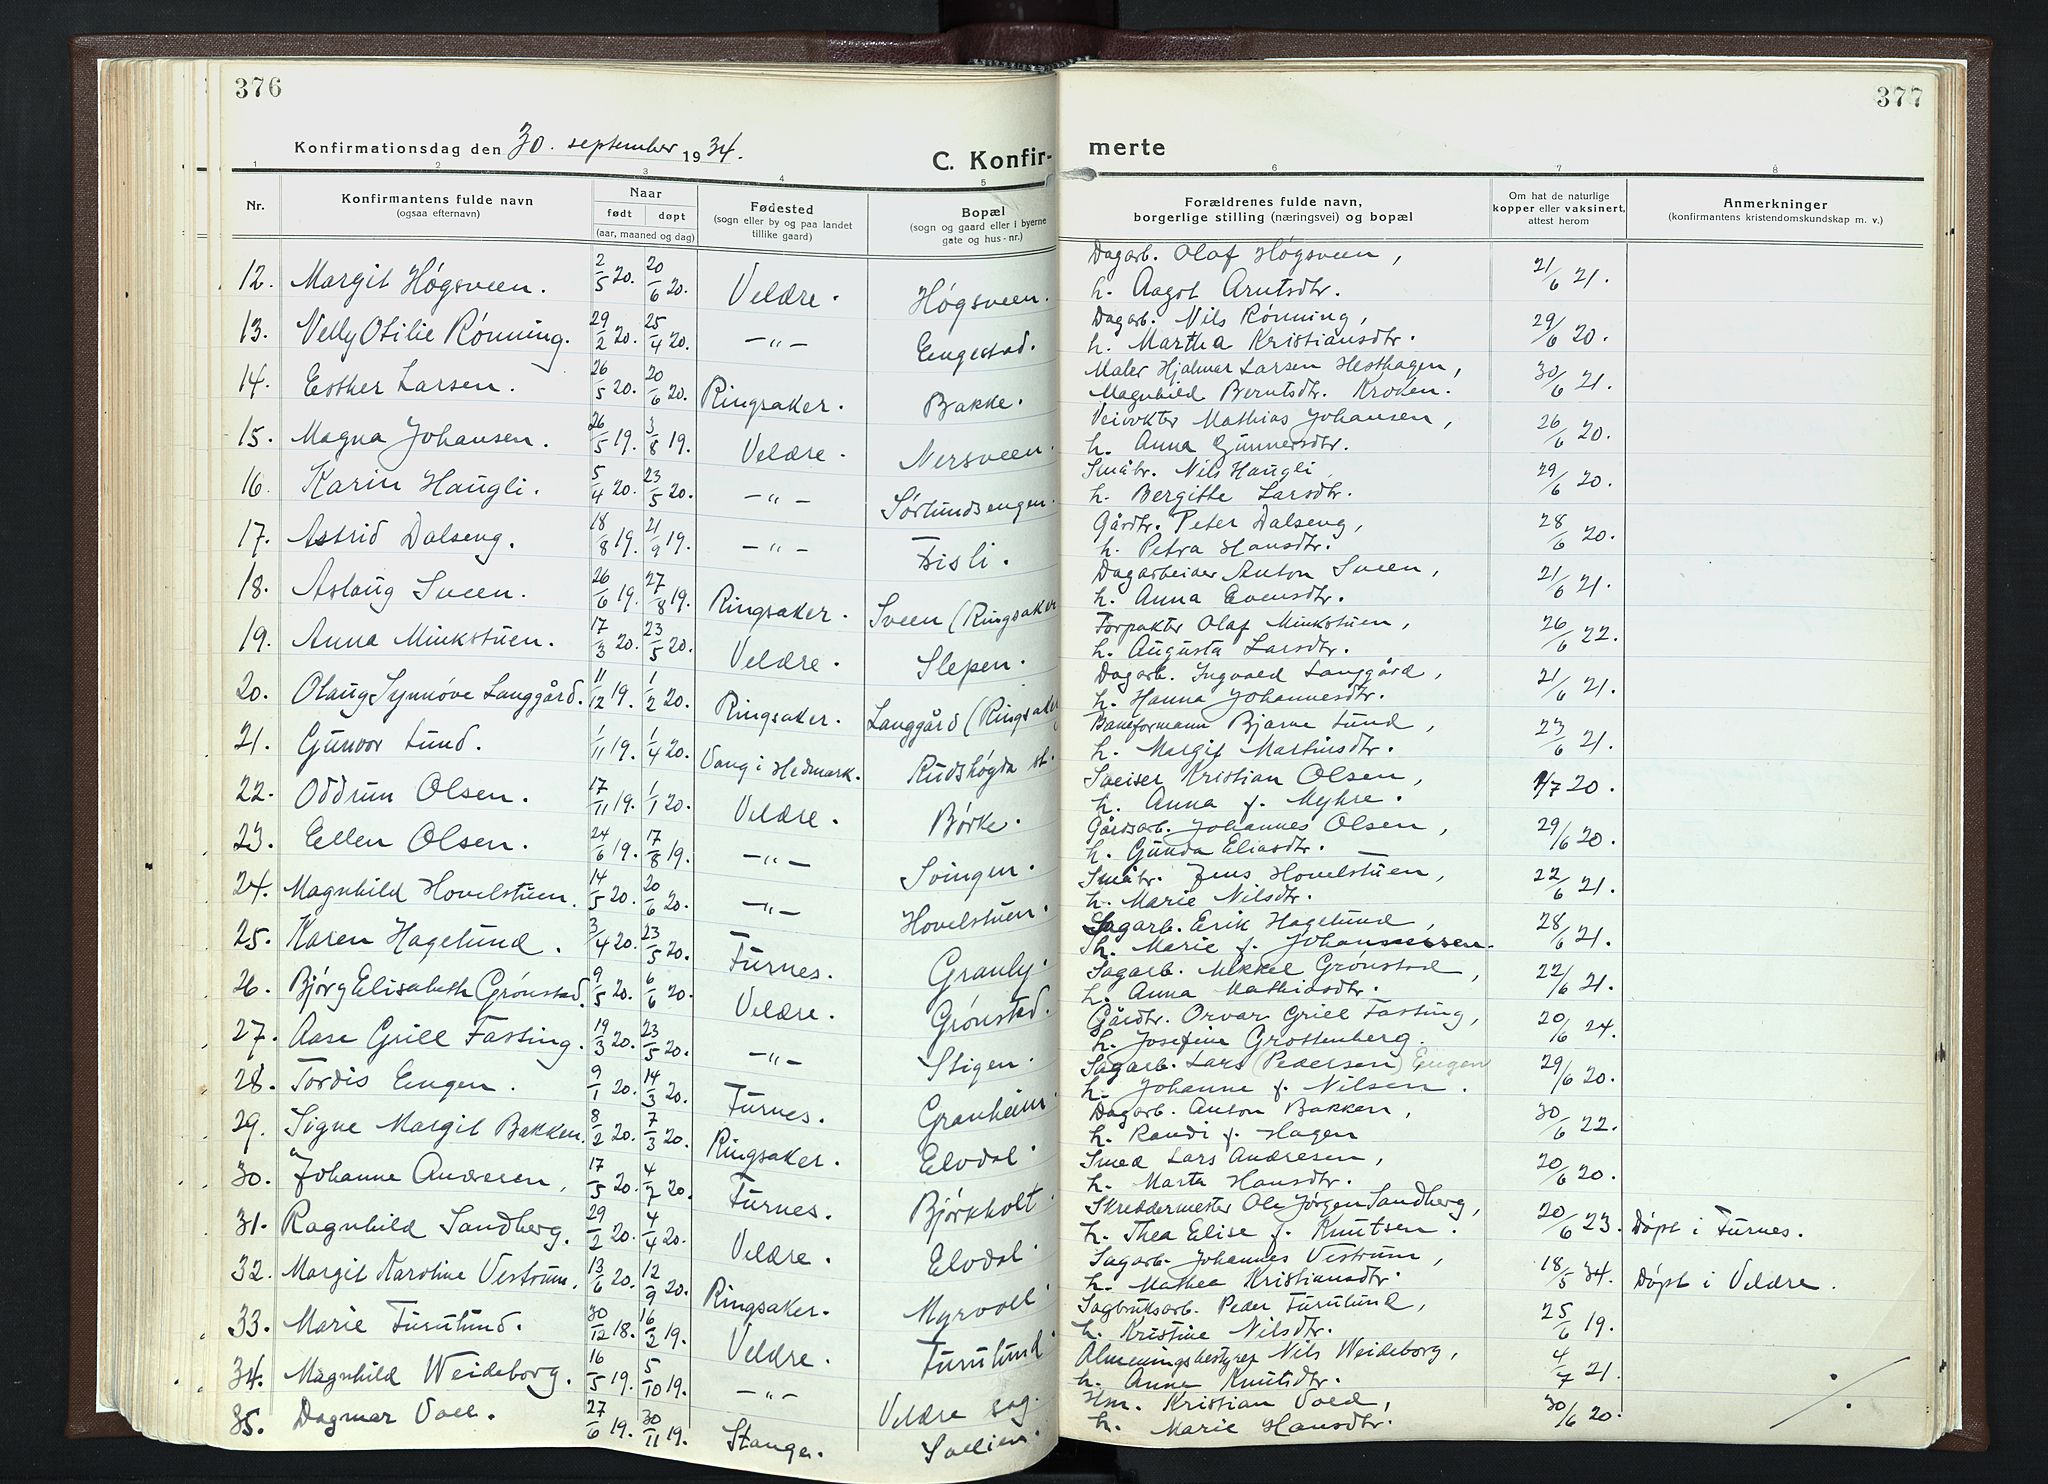 376
377
Konfirmationsdag den 30. september 1934.
C. Konfir-
merte
1 2 3 4 5 6 7 8
Nr. Konfirmantens fulde navn (ogsaa efternavn) Naar født døpt (aar, maaned og dag) Fødested (sogn eller by og paa landet tillike gaard) Bopæl (sogn og gaard eller i byerne gate og hus-nr.) Forældrenes fulde navn, borgerlige stilling (næringsvei) og bopæl Om hat de naturlige kopper eller vaksinert, attest herom Anmerkninger (konfirmantens kristendomskundskap m. v.)
12. Margit Høgsveen. 2/5 20. 20/6 20. Veldre. Høgsveen. Dagarb. Olaf Høgsveen, 21/6 21.
h. Aagot Arntsdtr.
13. Velly Otilie Rønning. 29/2 20. 25/4 20. —„— Engestad. Dagarb. Nils Rønning, 29/6 20.
h. Martha Kristiansdtr.
14. Esther Larsen. 26/5 20. 20/6 20. Ringsaker. Bakke. Maler Hjalmar Larsen Hesthagen, 30/6 21.
Magnhild Berntsdtr. Kroken.
15. Magna Johansen. 26/5 19. 3/8 19. Veldre. Nersveen. Veivokter Mathias Johansen, 26/6 20.
h. Anna Gunnersdtr.
16. Karin Haugli. 5/4 20. 23/5 20. —„— Sørlundsengen. Småbr. Nils Haugli, 29/6 20.
h. Bergitte Larsdtr.
17. Astrid Dalseng. 18/8 19. 21/9 19. —„— Fisli. Gårdbr. Peter Dalseng, 28/6 20.
h. Petra Hansdtr.
18. Aslaug Sveen. 26/6 19. 27/8 19. Ringsaker. Sveen (Ringsaker Dagarbeider Anton Sveen, 21/6 21.
h. Anna Evensdtr.
19. Anna Minkstuen. 17/3 20. 23/5 20. Veldre. Slepen. Forpakter Olaf Minkstuen, 26/6 22.
h. Augusta Larsdtr.
20. Olaug Synnøve Langgård. 11/12 19. 1/2 20. Ringsaker. Langgård (Ringsaker Dagarb. Ingvald Langgård, 21/6 21.
h. Hanna Johannesdtr.
21. Gunvor Lund. 1/11 19. 1/4 20. Vang i Hedmark. Rudshøgda st. Baneformann Bjarne Lund, 23/6 21.
h. Margit Martinsdtr.
22. Oddrun Olsen. 17/11 19. 1/1 20. Veldre. Børke. Sveiser Kristian Olsen, /7 20.
h. Anna f. Myhre.
23. Ellen Olsen. 24/6 19. 17/8 19. —„— Svingen. Gårdsarb. Johannes Olsen, 29/6 20.
h. Gunda Eliasdtr.
24. Magnhild Hovelstuen. 14/5 20. 20/6 20. —„— Hovelstuen. Småbr. Jens Hovelstuen, 22/6 21.
h. Marie Nilsdtr.
25. Karen Hagelund. 3/4 20. 23/5 20. Furnes. Granly. Sagarb. Erik Hagelund, 28/6 21.
h. Marie f. Johannessen.
26. Bjørg Elisabeth Grønstad. 9/5 20. 6/6 20. Veldre. Grønstad. Sagarb. Mikkel Grønstad, 22/6 21.
h. Anna Mathiasdtr.
27. Aase Grill Fasting. 19/3 20. 23/5 20. —„— Stigen. Gårdbr. Orvar Grill Fasting, 20/6 24.
h. Josefine Grottenberg.
28. Tordis Engen. 9/1 20. 14/3 20. Furnes. Granheim. Sagarb. Lars (Pedersen) Engen 29/6 20.
h. Johanne f. Nilsen.
29. Signe Margit Bakken. 8/2 20. 7/3 20. Ringsaker. Elvdal. Dagarb. Anton Bakken, 30/6 22.
h. Randi f. Hagen
30. Johanne Andresen, 17/5 20. 4/7 20. Furnes. Bjørkholt. Smed Lars Andresen, 20/6 20.
h. Marta Hansdtr.
31. Ragnhild Sandberg. 29/2 20. 4/4 20. Veldre. Elvdal. Skreddermester Ole Jørgen Sandberg, 20/6 23. Døpt i Furnes.
h. Thea Elise f. Knutsen.
32. Margit Karoline Vestrum. 13/6 20. 12/9 20. Ringsaker. Myrvoll. Sagarb. Johannes Vestrum, 18/5 34. Døpt i Veldre.
h. Mathea Kristiansdtr.
33. Marie Furulund. 30/12 18. 16/2 19. Veldre. Furulund. Sagbruksarb. Peder Furulund, 25/6 19.
h. Kristine Nilsdtr.
34. Magnhild Weideborg. 16/5 19. 5/10 19. —„— Veldre sag. Almenningsbestyrer Nils Weideborg, 4/7 21.
h. Anne Knutsdtr.
35. Dagmar Voll. 27/6 19. 30/11 19. Stange. Sollien. Hm. Kristian Vold, 30/6 20.
h. Marie Hansdtr.